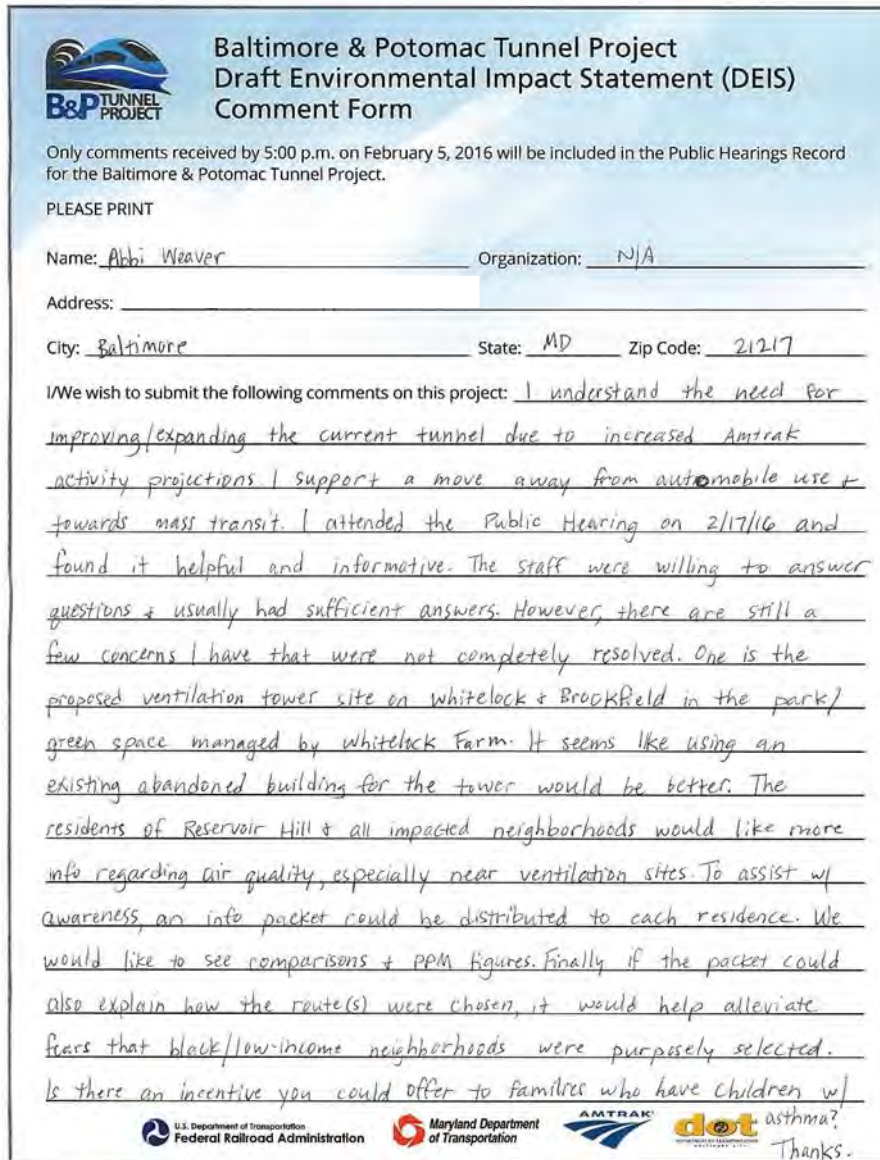 B&P TUNNEL PROJECT
Baltimore & Potomac Tunnel Project
Draft Environmental Impact Statement (DEIS)
Comment Form
Only comments received by 5:00 p.m. on February 5, 2016 will be included in the Public Hearings Record
for the Baltimore & Potomac Tunnel Project.
PLEASE PRINT
Name: Abbi Weaver Organization: N/A
Address:
City: Baltimore State: MD Zip Code: 21217
I/We wish to submit the following comments on this project: I understand the need for
improving/expanding the current tunnel due to increased Amtrak
activity projections I support a move away from automobile use +
towards mass transit. I attended the Public Hearing on 2/17/16 and
found it helpful and informative. The staff were willing to answer
questions + usually had sufficient answers. However, there are still a
few concerns I have that were not completely resolved. One is the
proposed ventilation tower site on Whitelock + Brookfield in the park/
green space managed by Whitelock Farm. It seems like using an
existing abandoned building for the tower would be better. The
residents of Reservoir Hill + all impacted neighborhoods would like more
info regarding air quality, especially near ventilation sites. To assist w/
awareness, an info packet could be distributed to each residence. We
would like to see comparisons + PPM figures. Finally if the packet could
also explain how the route(s) were chosen, it would help alleviate
fears that black/low-income neighborhoods were purposely selected.
Is there an incentive you could offer to families who have children w/
asthma?
Thanks.
U.S. Department of Transportation
Federal Railroad Administration
Maryland Department
of Transportation
AMTRAK
dot